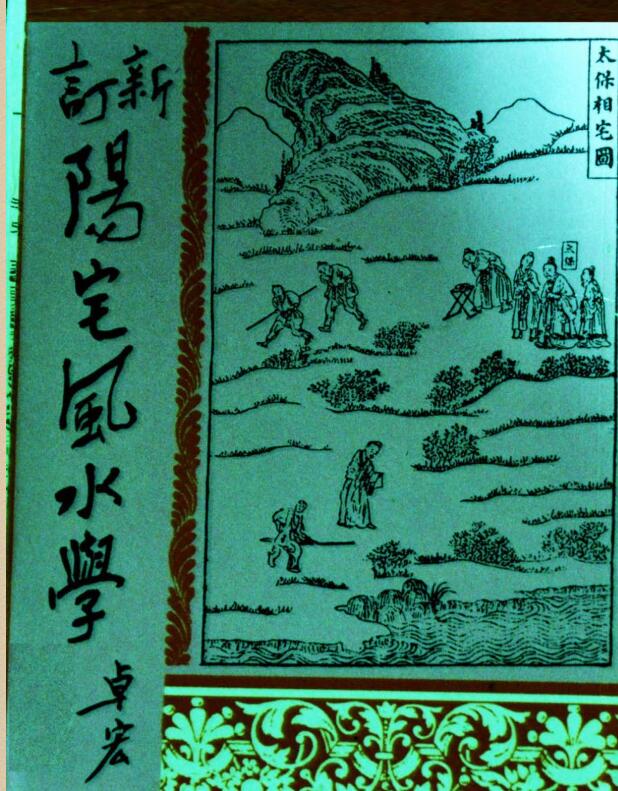 新訂
陽宅風水學
卓宏
太保相宅圖
太保